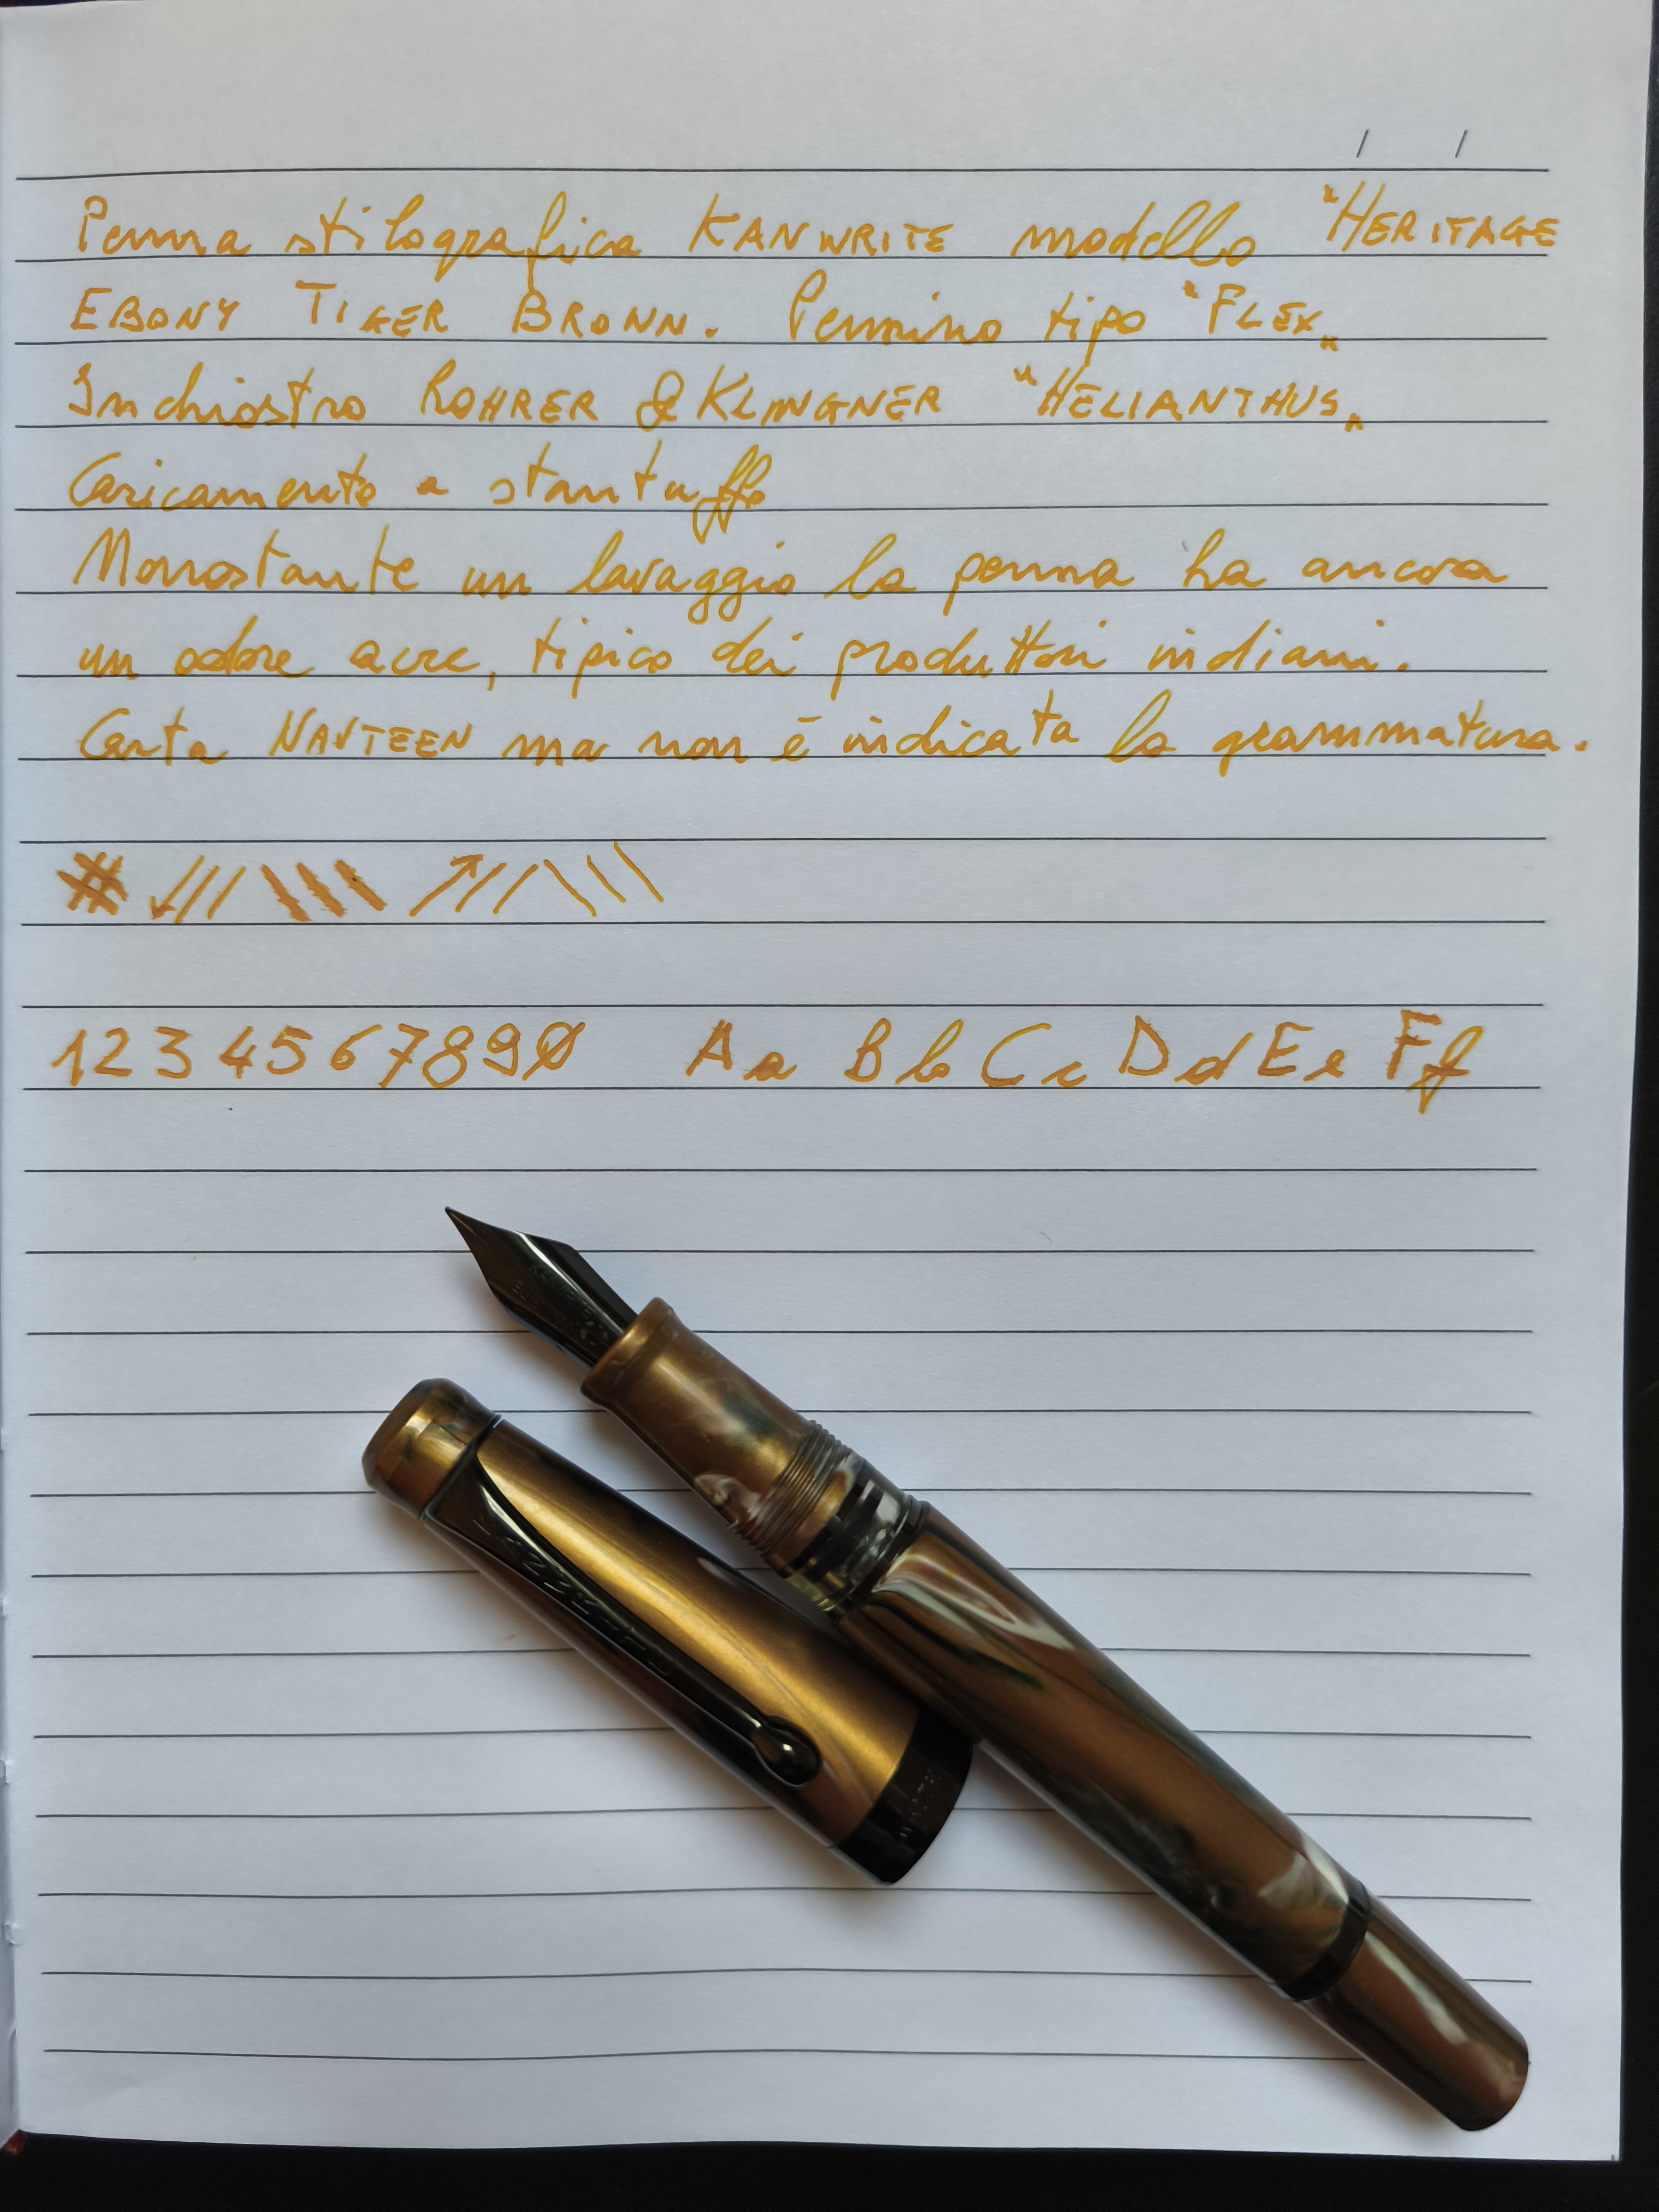 Penna stilografica KANWRITE modello "HERITAGE
EBONY TIGER BROWN. Pennino tipo "FLEX"
Inchiostro ROHRER & KLINGNER "HELIANTHUS"
Caricamento a stantuffo
Nonostante un lavaggio la penna ha ancora
un odore acre, tipico dei produttori indiani.
Carta NAVTEEN ma non è indicata la grammatura.
1234567890 Aa Bb Cc Dd Ee Ff